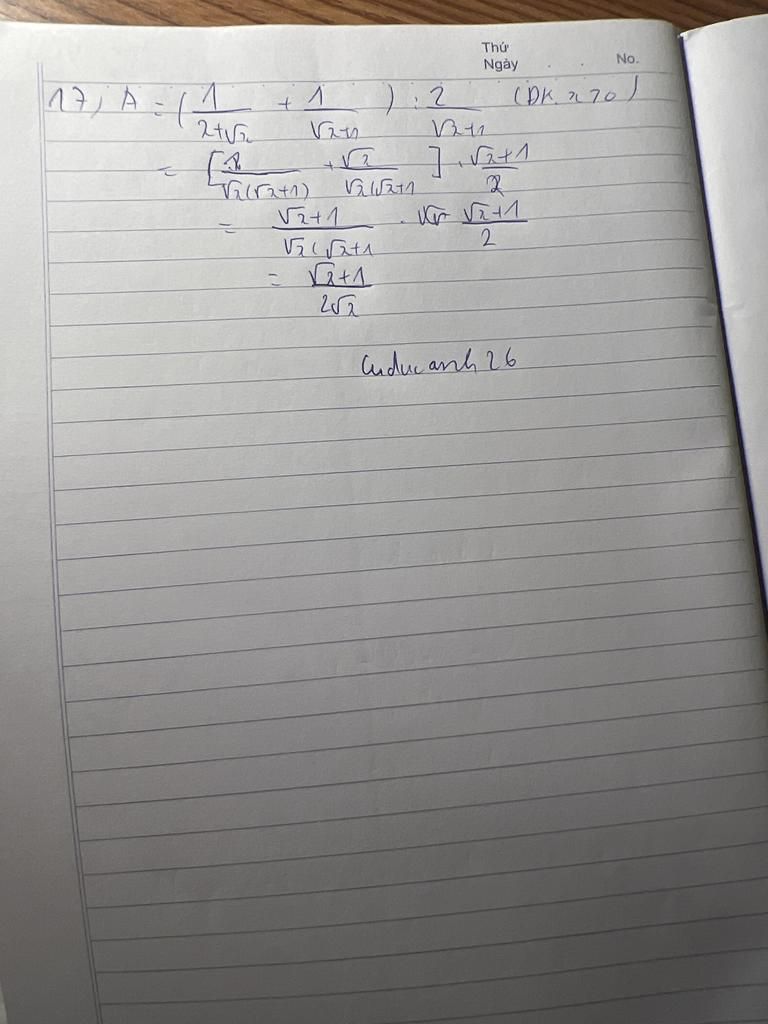 Thứ
Ngày . . No.
17, A = (1/(x+√x) + 1/(√x+1)) : 2/(√x+1) (ĐK x>0)
= [1/(√x(√x+1)) + √x/(√x(√x+1)] . (√x+1)/2
= (√x+1)/(√x(√x+1) . (√x+1)/2
= (√x+1)/(2√x)
Cuducanh26